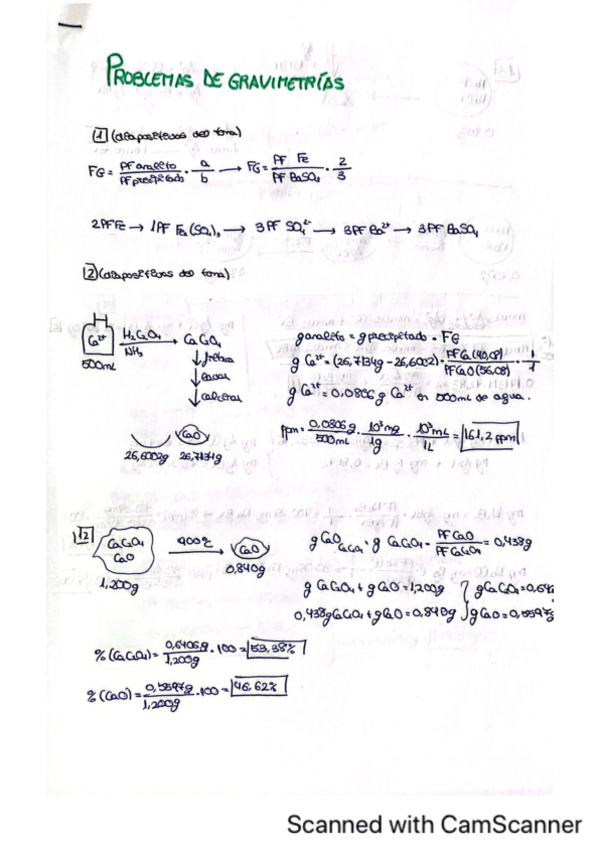 PROBLEMAS DE GRAVIMETRÍAS
1 (diapositivas del tema)
FG = PF analito / PF precipitado · a/b → FG = PF Fe / PF BaSO4 · 2/3
2PF Fe → 1PF Fe2(SO4)3 → 3PF SO4²⁻ → 3PF Ba²⁺ → 3PF BaSO4
2 (diapositivas del tema)
Ca²⁺ H2C2O4 / NH3 → CaC2O4
500mL
↓ filtrar
↓ lavar
↓ calcinar
CaO
26,6002g 26,7134g
g analito = g precipitado · FG
g Ca²⁺ = (26,7134g - 26,6002) · PF Ca (40,08) / PF CaO (56,08) · 1/1
g Ca²⁺ = 0,0806g Ca²⁺ en 500mL de agua.
ppm = 0,0806g / 500mL · 10³mg / 1g · 10³mL / 1L = 161,2 ppm
12
CaC2O4 CaO 900ºC → CaO
1,200g 0,840g
g CaO CaC2O4 = g CaC2O4 · PF CaO / PF CaC2O4 = 0,438g
g CaC2O4 + g CaO = 1,200g g CaC2O4 = 0,64
0,438g CaC2O4 + g CaO = 0,840g g CaO = 0,5597g
% (CaC2O4) = 0,6406g / 1,200g · 100 = 53,38%
% (CaO) = 0,5597g / 1,200g · 100 = 46,62%
Scanned with CamScanner